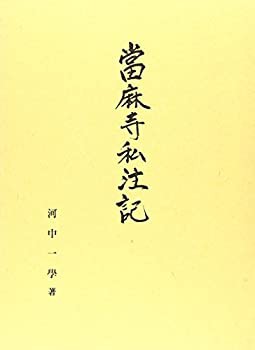 當麻寺私注記
河中一學著